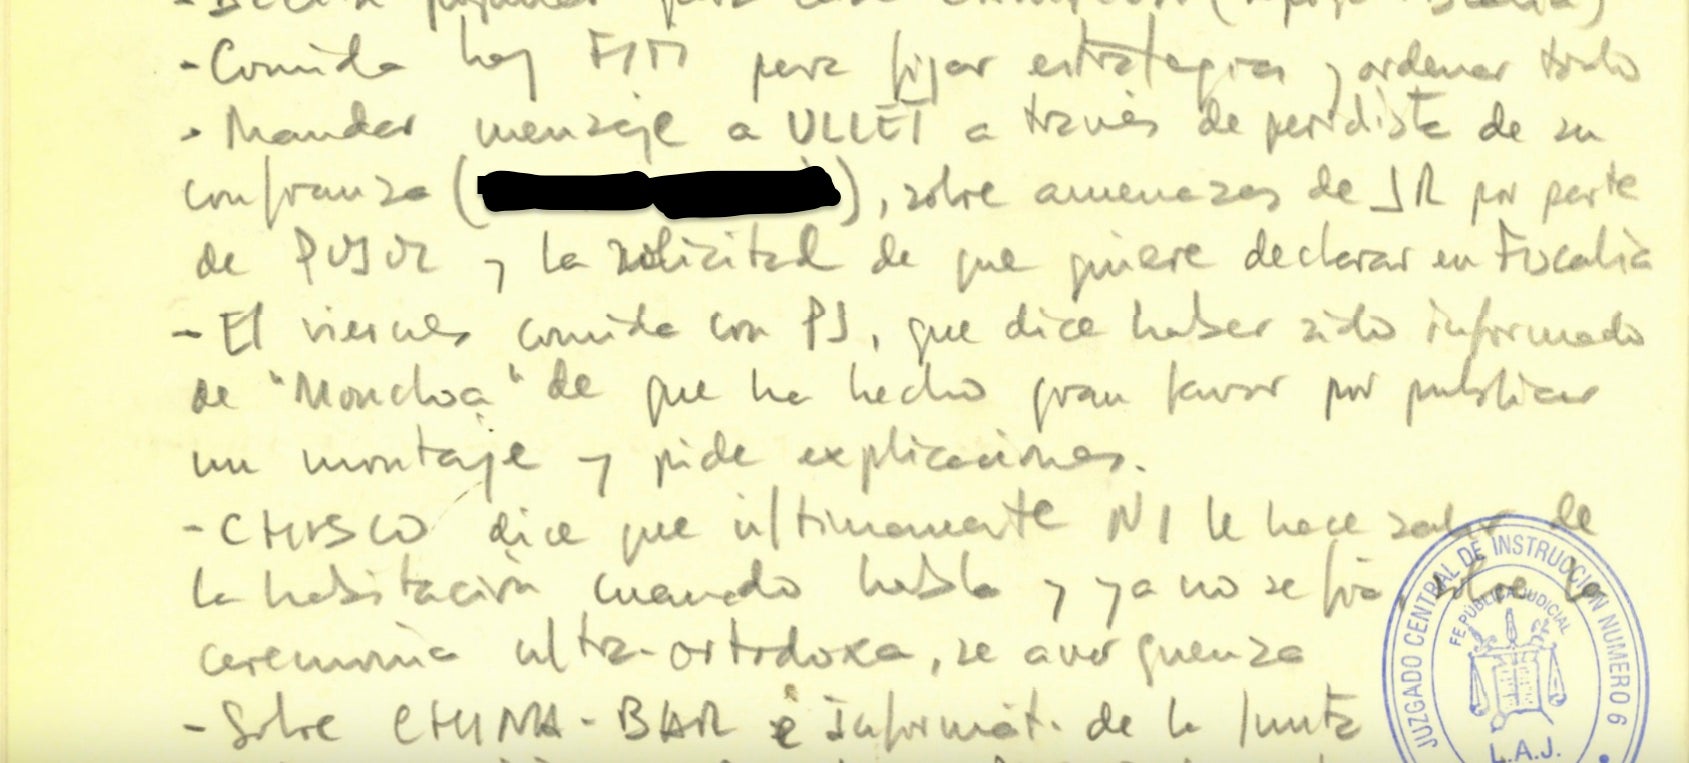 para
- Comida hoy para fijar estrategia y ordenar todo
- Mandar mensaje a ULLET a través de peridista de su
confianza ( ), sobre amenazas de JR por parte
de PUJOL y la solicitud de que quiere declarar en Fiscalía
- El viernes comida con PJ, que dice haber sido informado
de "Moncloa" de que ha hecho gran favor por publicar
un montaje y pide explicaciones.
- CHUSCO dice que últimamente N1 le hace salir de
la habitación cuando habla y ya no se fía, sobre la
ceremonia ultra-ortodoxa, se avergüenza
- Sobre BAR e informát. de la Junta
JUZGADO CENTRAL DE INSTRUCCIÓN NUMERO 6
FE PÚBLICA JUDICIAL
L.A.J.